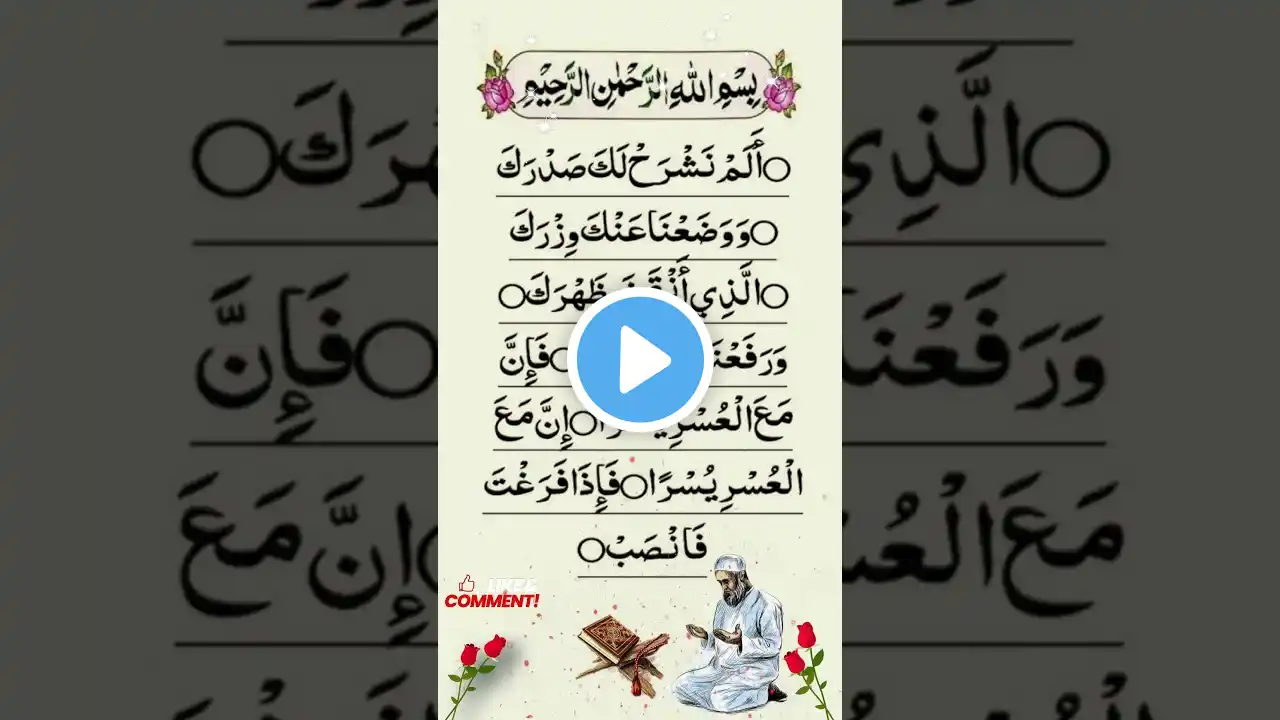 بِسْمِ اللهِ الرَّحْمٰنِ الرَّحِيْمِ
○أَلَمْ نَشْرَحْ لَكَ صَدْرَكَ
○وَوَضَعْنَا عَنْكَ وِزْرَكَ
○الَّذِي ظَهْرَكَ○
وَرَفَعْنَا ○فَإِنَّ
مَعَ الْعُسْرِ ○إِنَّ مَعَ
الْعُسْرِ يُسْرًا○فَإِذَا فَرَغْتَ
فَانْصَبْ○
LIKE &
COMMENT!